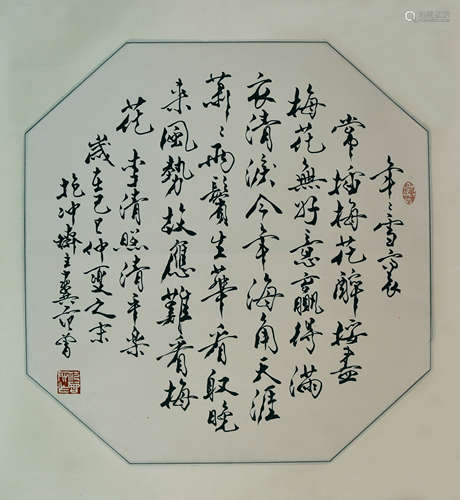 年〻雪裏
常插梅花醉挼盡
梅花無好意贏得滿
衣清淚今年海角天涯
蕭〻兩鬢生華看取晚
来風勢故應難看梅
花 李清照清平樂
歲在己巳仲夏之末
抱冲齋主十翼范曾